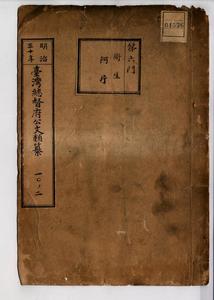 明治
三十年
臺灣總督府公文類纂
一〇ノ二
第六門
衛生
阿片